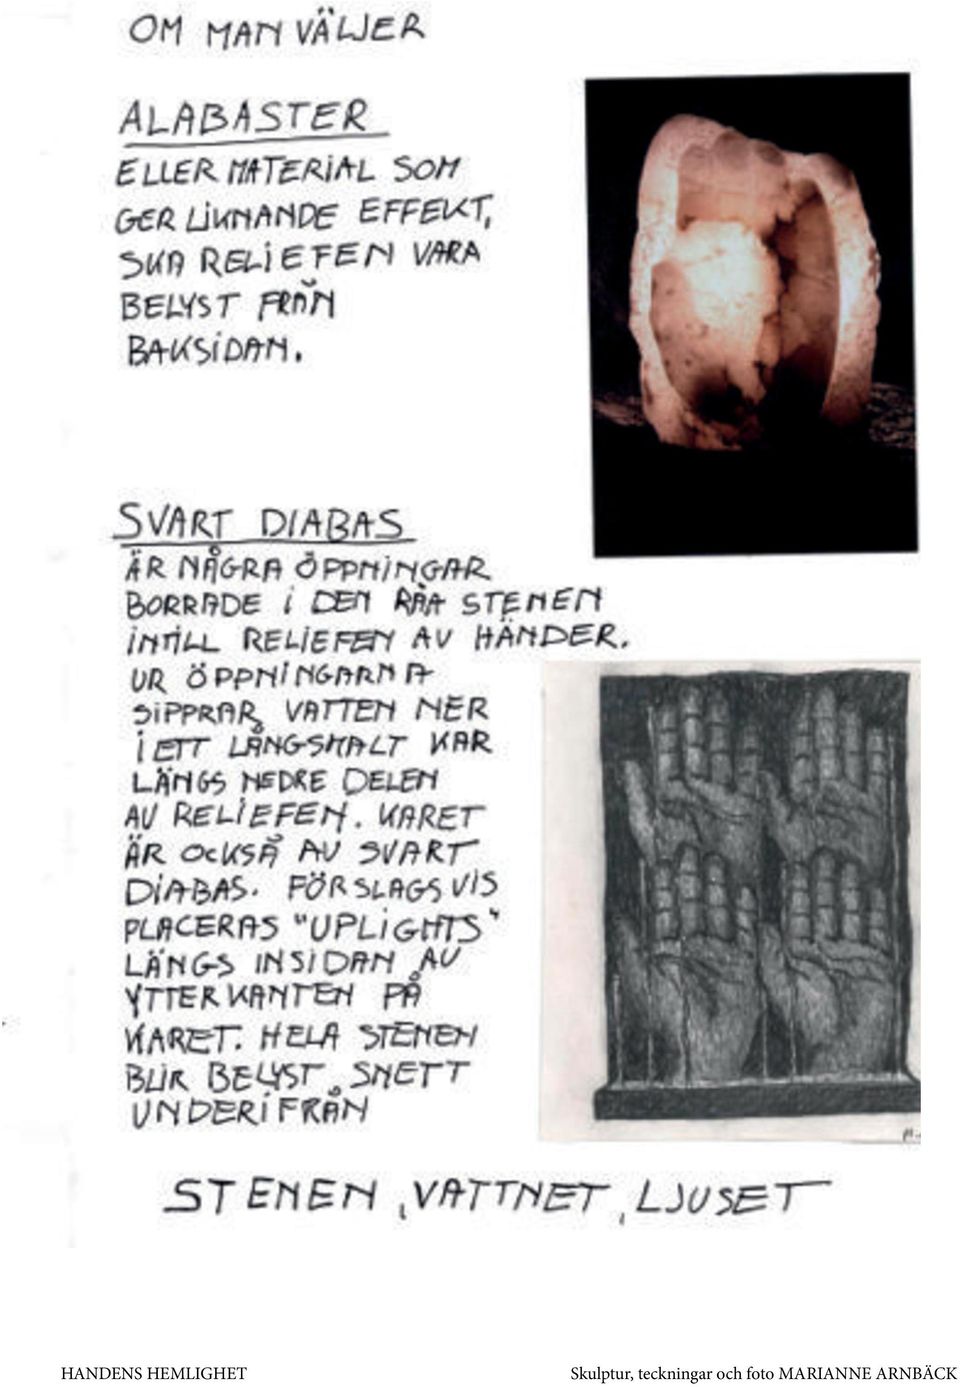 OM MAN VÄLJER
ALABASTER
ELLER MATERIAL SOM
GER LIKNANDE EFFEKT,
SKA RELIEFEN VARA
BELYST FRÅN
BAKSIDAN.
SVART DIABAS
ÄR NÅGRA ÖPPNINGAR
BORRADE I DEN RÅA STENEN
INTILL RELIEFEN AV HÄNDER.
UR ÖPPNINGARNA
SIPPRAR VATTEN NER
I ETT LÅNGSMALT KAR
LÄNGS NEDRE DELEN
AV RELIEFEN. KARET
ÄR OCKSÅ AV SVART
DIABAS. FÖRSLAGSVIS
PLACERAS "UPLIGHTS"
LÄNGS INSIDAN AV
YTTERKANTEN PÅ
KARET. HELA STENEN
BLIR BELYST SNETT
UNDERIFRÅN
STENEN, VATTNET, LJUSET
HANDENS HEMLIGHET
Skulptur, teckningar och foto MARIANNE ARNBÄCK